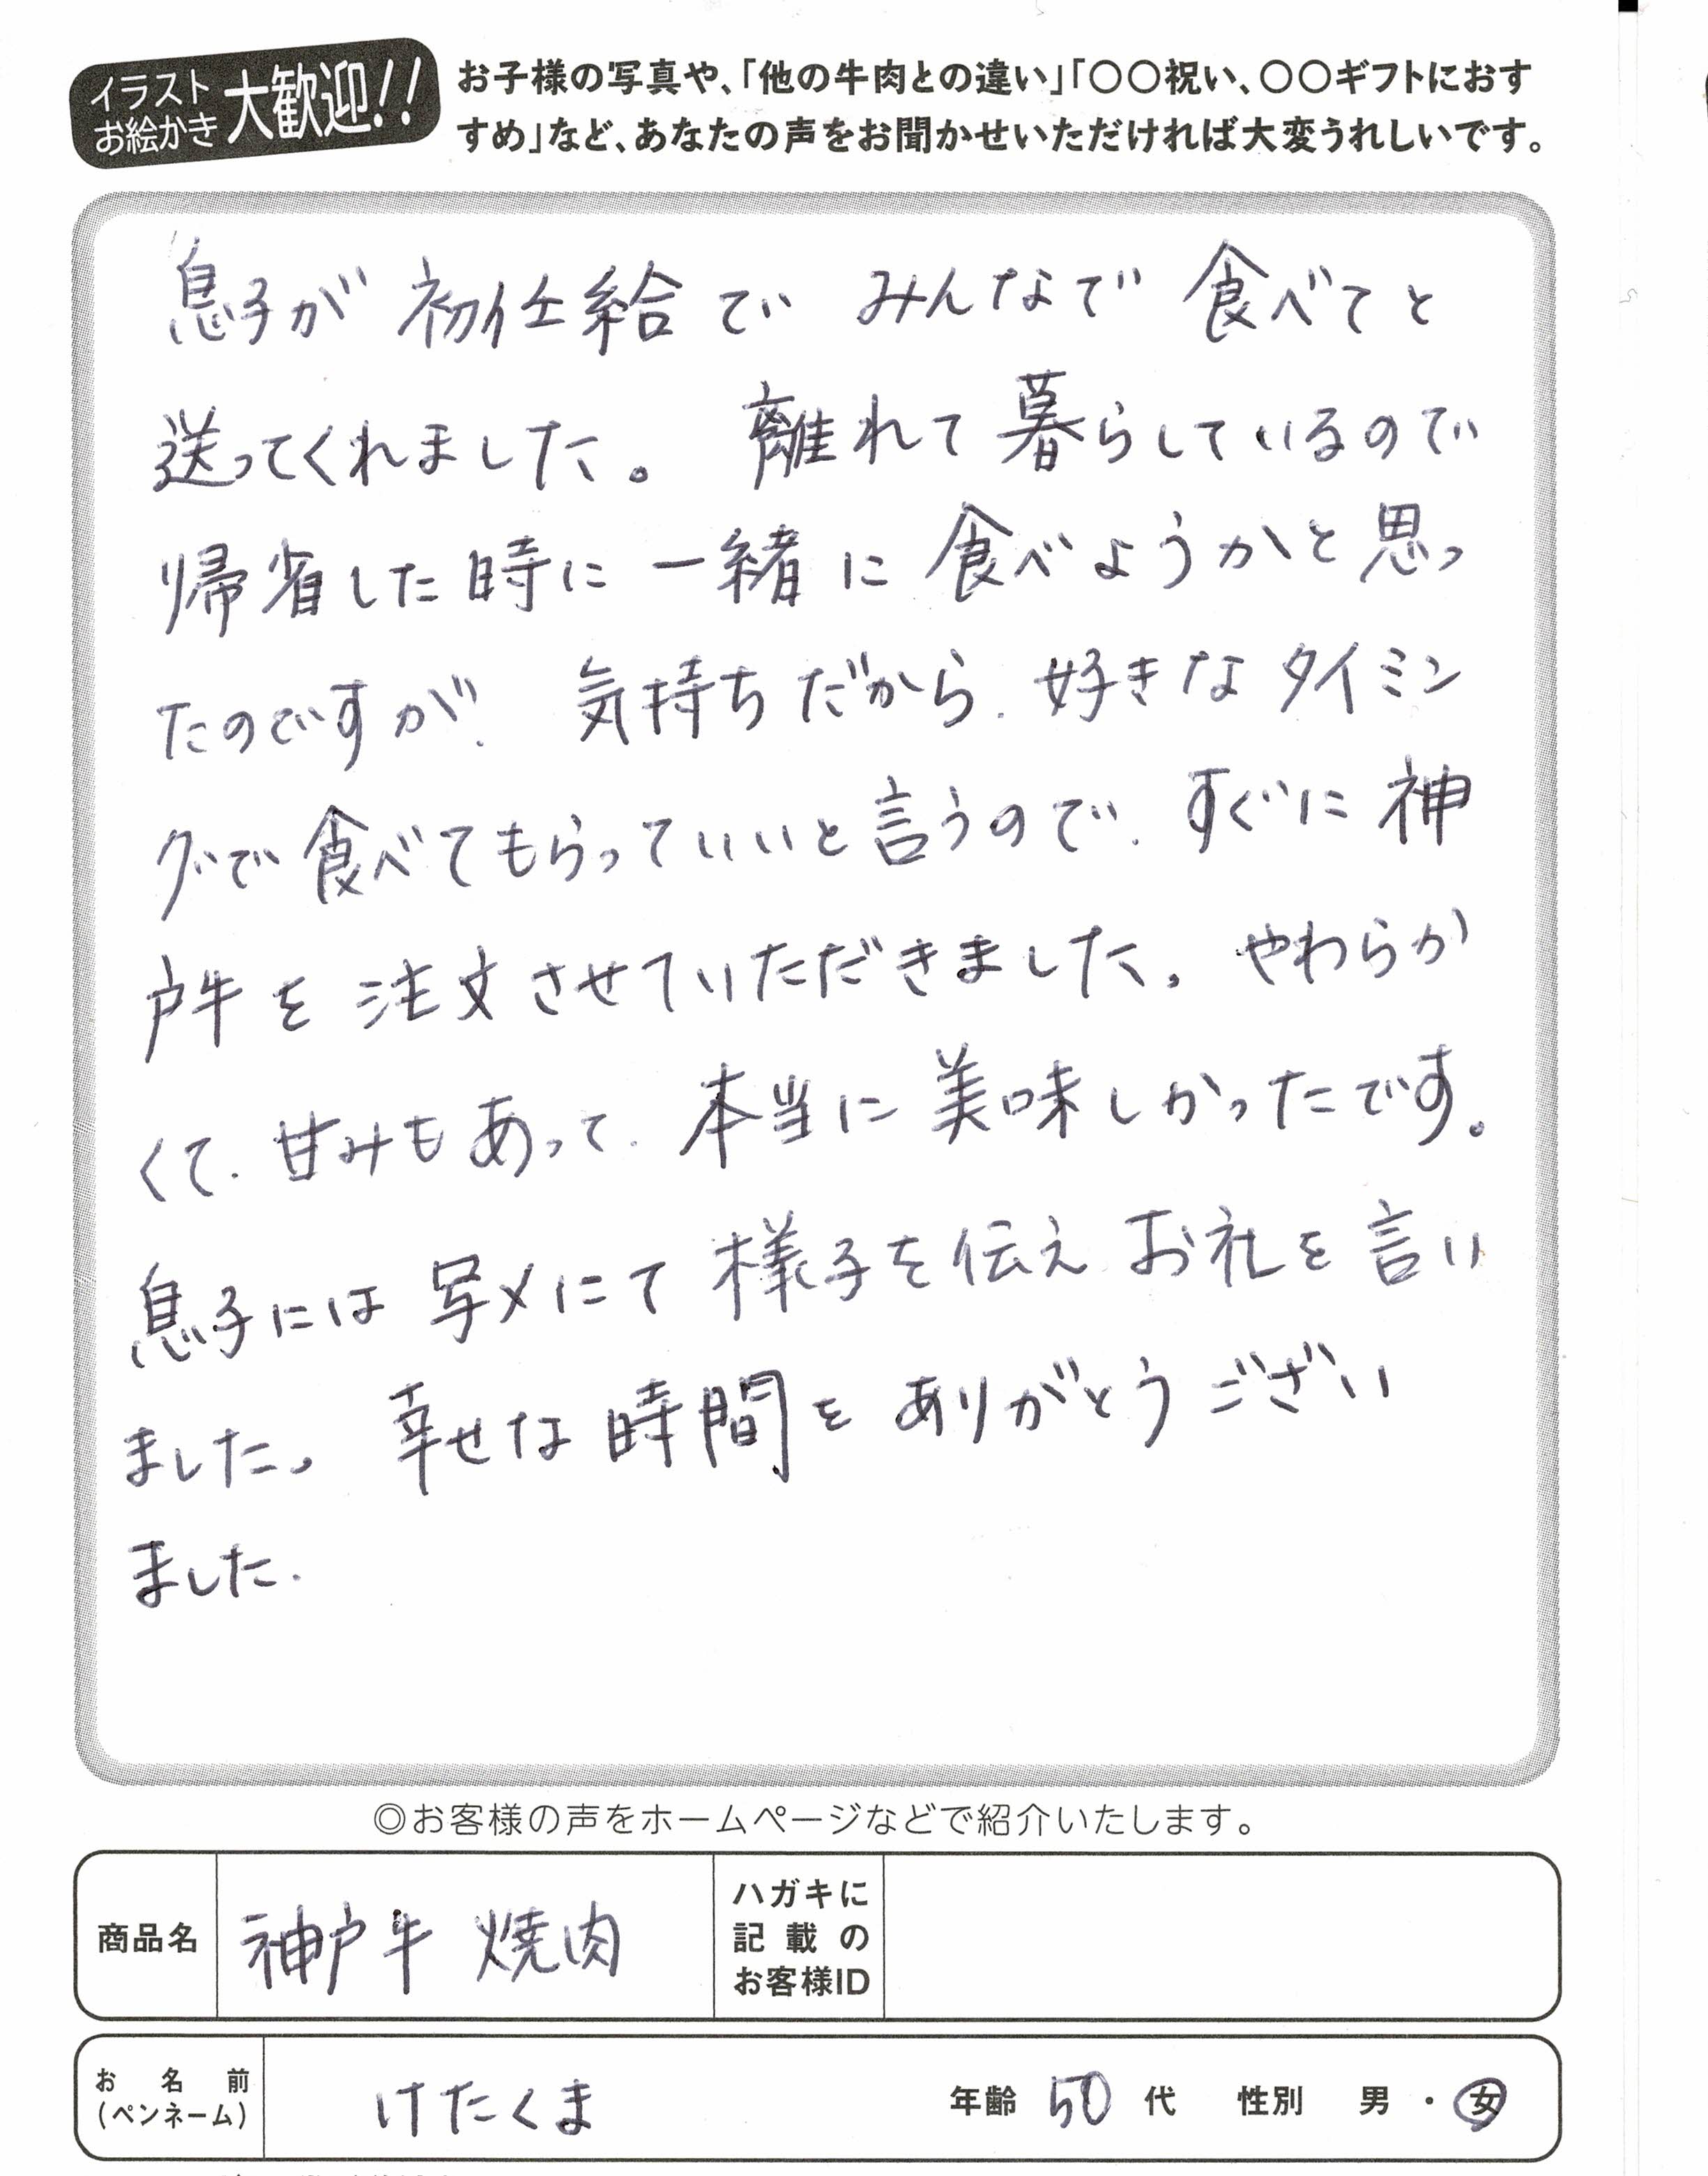 イラスト
お絵かき
大歓迎!!
お子様の写真や、「他の牛肉との違い」「〇〇祝い、〇〇ギフトにおす
すめ」など、あなたの声をお聞かせいただければ大変うれしいです。
息子が 初仕給で みんなで 食べてと
送ってくれました。 離れて暮らしているので
帰省した時に 一緒に 食べようかと思っ
たのですが、 気持ちだから、好きなタイミン
グで食べてもらっていいと言うので、すぐに神
戸牛を注文させていただきました。 やわらか
くて、甘みもあって、本当に美味しかったです。
息子には 写メにて 様子を伝え お礼を言い
ました。 幸せな時間を ありがとうござい
ました。
◎お客様の声をホームページなどで紹介いたします。
商品名 神戸牛 焼肉
ハガキに
記載の
お客様ID
お名前
(ペンネーム)
けたくま 年齢 50 代 性別 男・女